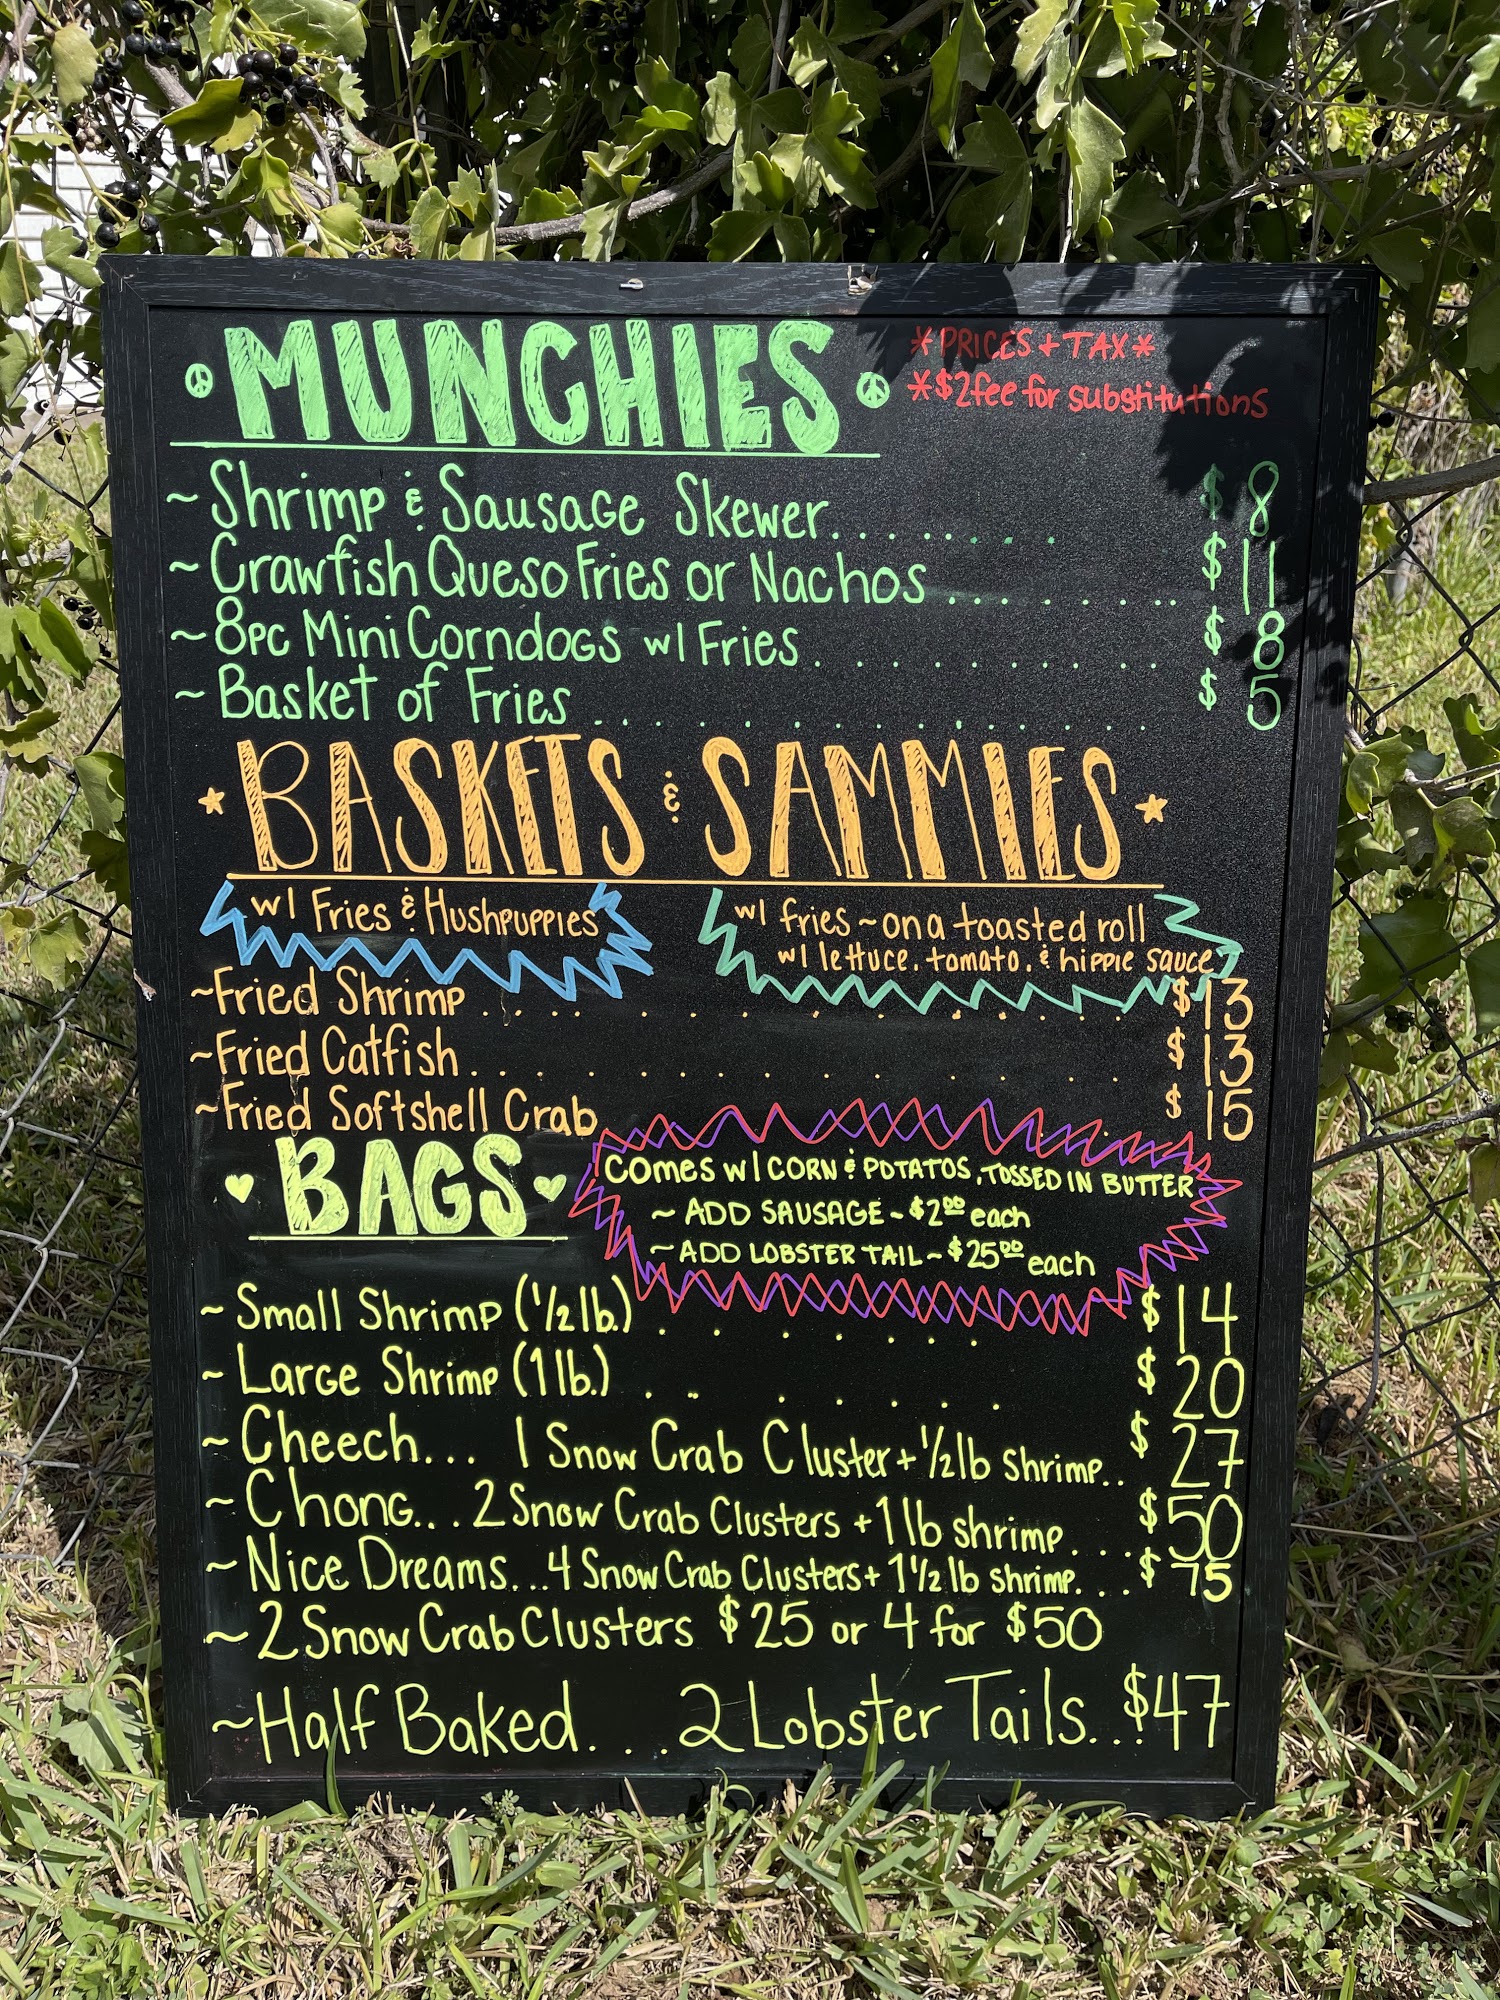 MUNCHIES
*PRICES + TAX*
*$2 fee for substitutions
~Shrimp & Sausage Skewer........ $8
~Crawfish Queso Fries or Nachos........ $11
~8pc Mini Corndogs w/ Fries......... $8
~Basket of Fries............ $5
BASKETS & SAMMIES
w/ Fries & Hushpuppies
w/ fries ~ on a toasted roll
w/ lettuce, tomato, & hippie sauce
~Fried Shrimp............. $13
~Fried Catfish............ $13
~Fried Softshell Crab $15
BAGS
Comes w/ CORN & POTATOS, TOSSED IN BUTTER
~ ADD SAUSAGE ~ $2.00 each
~ ADD LOBSTER TAIL ~ $25.00 each
~ Small Shrimp (1/2 lb.)....... $14
~ Large Shrimp (1 lb.)........ $20
~ Cheech... 1 Snow Crab Cluster + 1/2 lb shrimp.. $27
~ Chong... 2 Snow Crab Clusters + 1 lb shrimp.... $50
~ Nice Dreams... 4 Snow Crab Clusters + 1 1/2 lb shrimp... $75
~ 2 Snow Crab Clusters $25 or 4 for $50
~Half Baked... 2 Lobster Tails... $47